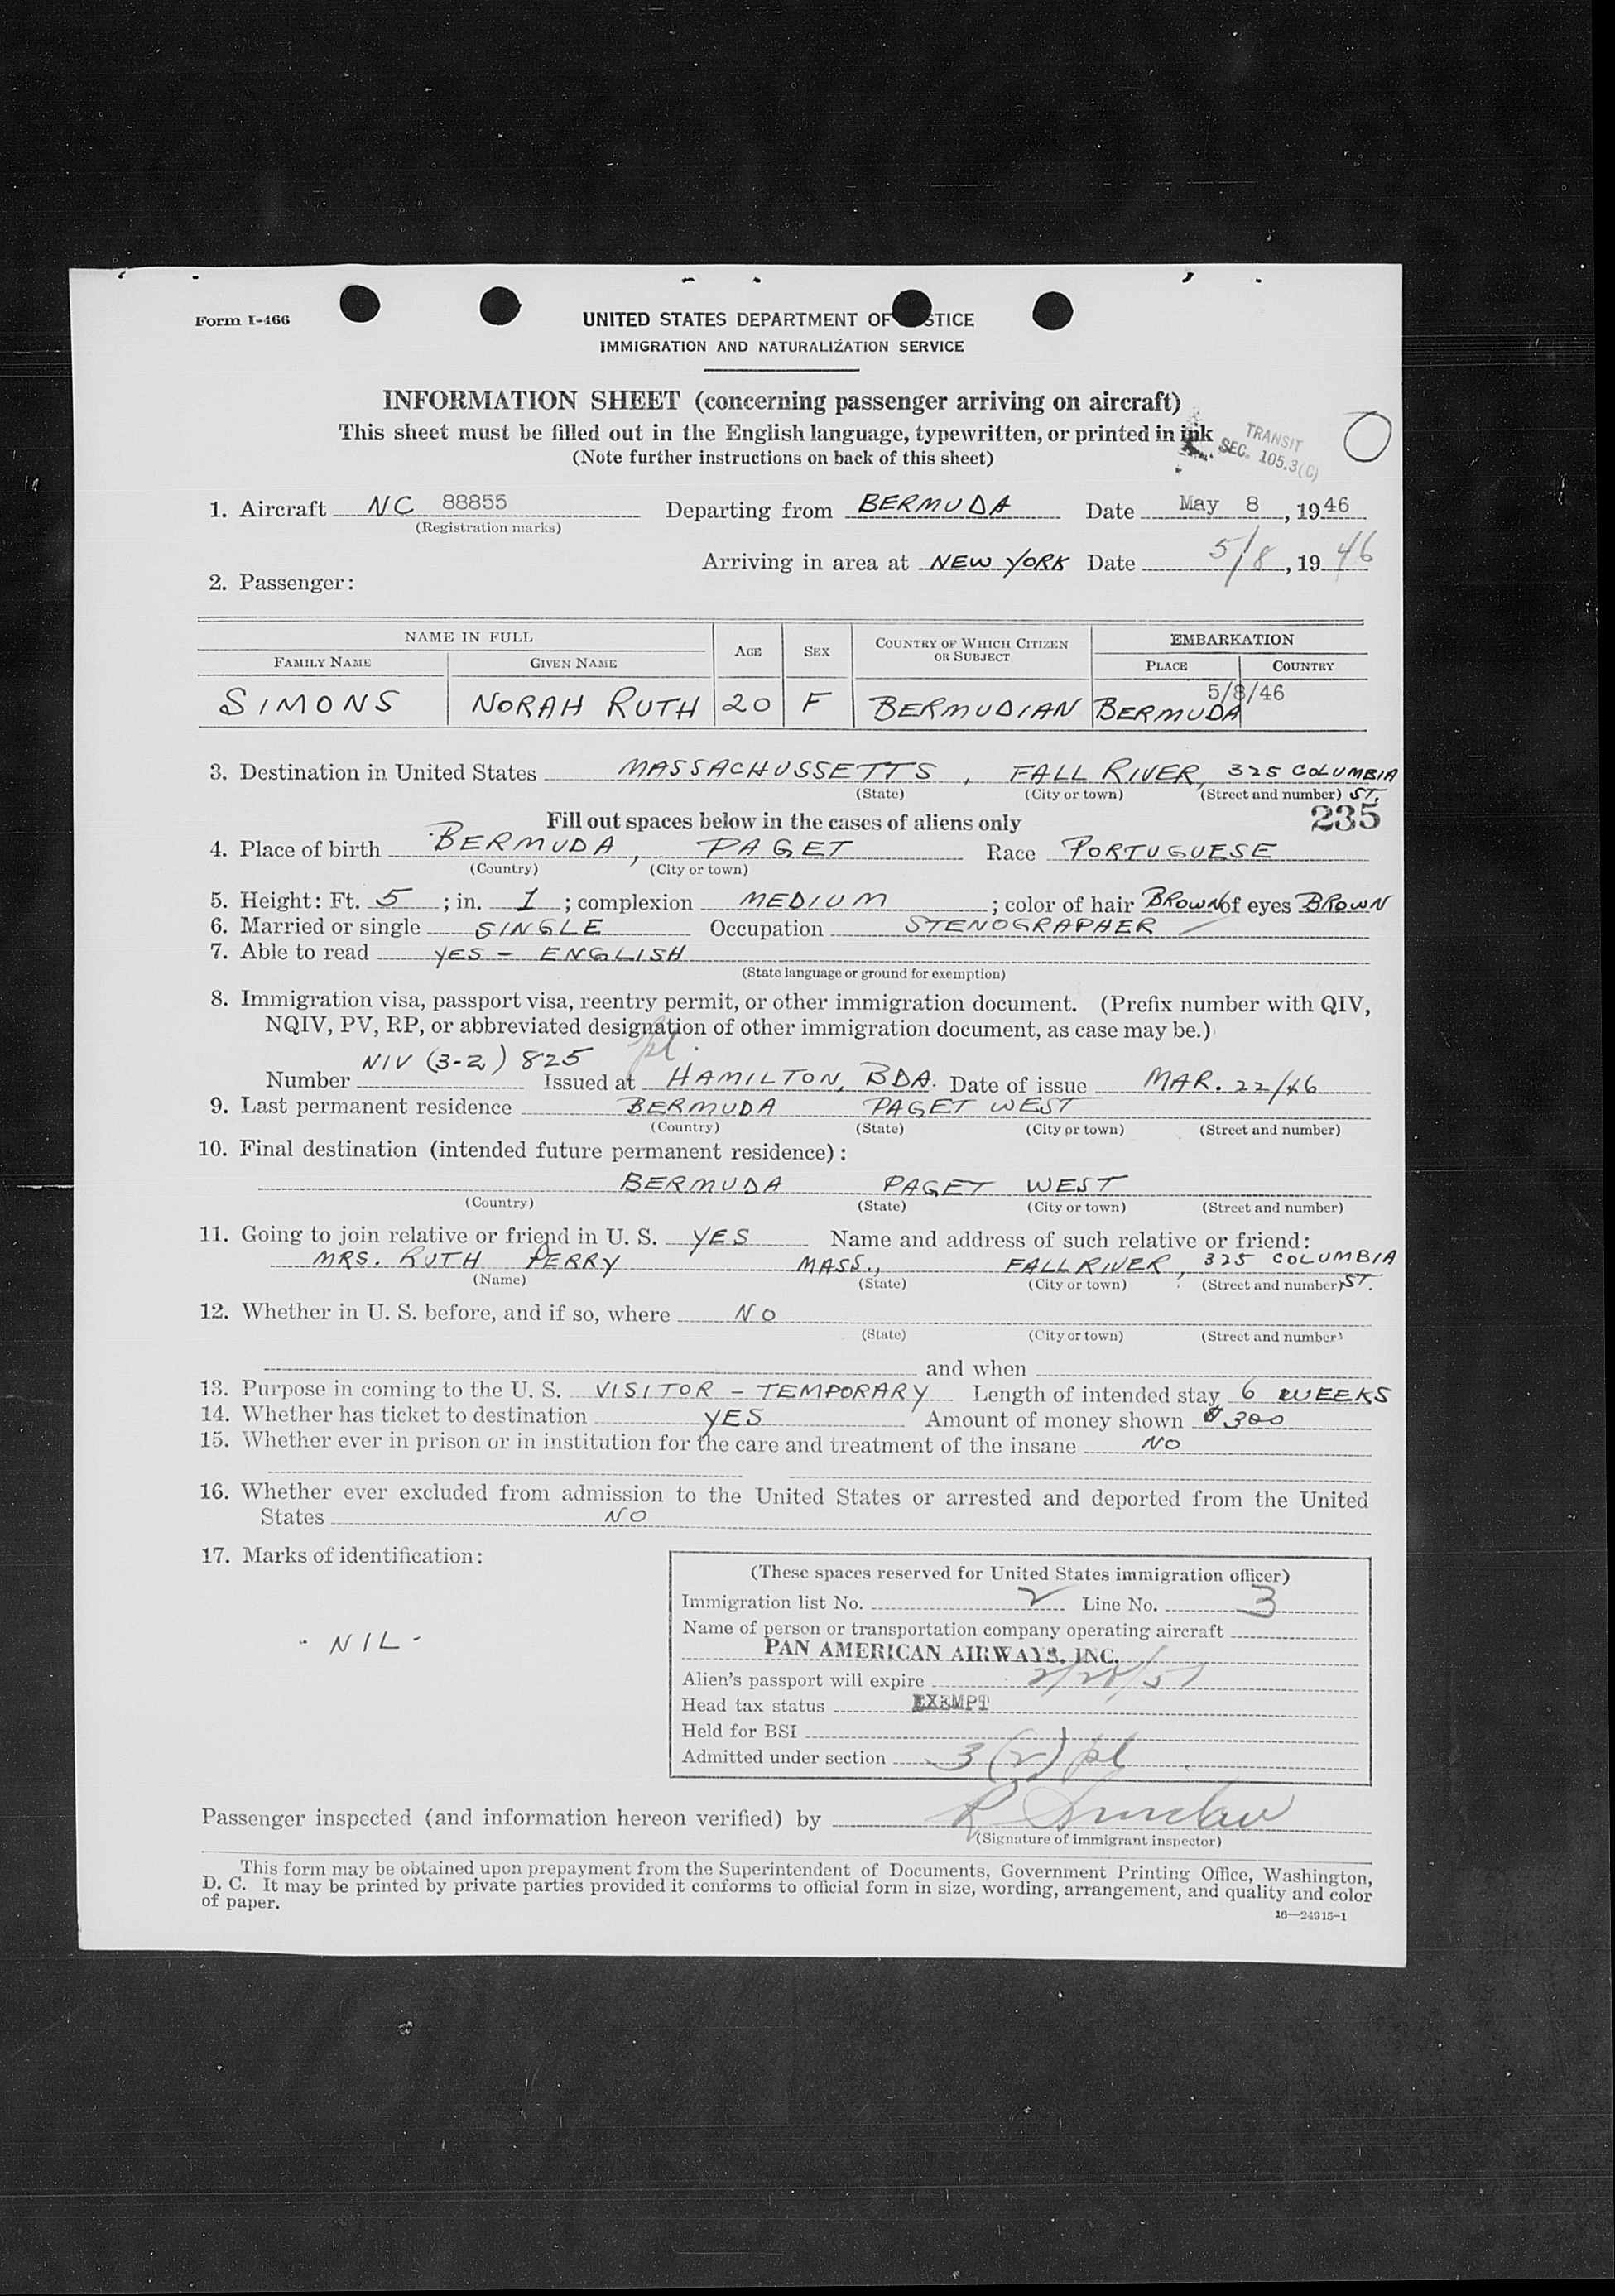 Form I-466
UNITED STATES DEPARTMENT OF STICE
IMMIGRATION AND NATURALIZATION SERVICE
INFORMATION SHEET (concerning passenger arriving on aircraft)
This sheet must be filled out in the English language, typewritten, or printed in ink
(Note further instructions on back of this sheet)
TRANSIT
SEC. 105.3(C)
1. Aircraft NC 88855 Departing from BERMUDA Date May 8, 1946
(Registration marks)
Arriving in area at NEW YORK Date 5/8, 1946
2. Passenger:
NAME IN FULL AGE SEX COUNTRY OF WHICH CITIZEN OR SUBJECT EMBARKATION
FAMILY NAME GIVEN NAME PLACE COUNTRY
5/8/46
SIMONS NORAH RUTH 20 F BERMUDIAN BERMUDA
3. Destination in United States MASSACHUSSETTS, FALL RIVER, 325 COLUMBIA
(State) (City or town) (Street and number) ST.
Fill out spaces below in the cases of aliens only 235
4. Place of birth BERMUDA, PAGET Race PORTUGUESE
(Country) (City or town)
5. Height: Ft. 5; in. 1; complexion MEDIUM; color of hair BROWN of eyes BROWN
6. Married or single SINGLE Occupation STENOGRAPHER
7. Able to read YES - ENGLISH
(State language or ground for exemption)
8. Immigration visa, passport visa, reentry permit, or other immigration document. (Prefix number with QIV,
NQIV, PV, RP, or abbreviated designation of other immigration document, as case may be.)
Number NIV (3-2) 825 Issued at HAMILTON, BDA. Date of issue MAR. 22/46
9. Last permanent residence BERMUDA PAGET WEST
(Country) (State) (City or town) (Street and number)
10. Final destination (intended future permanent residence):
BERMUDA PAGET WEST
(Country) (State) (City or town) (Street and number)
11. Going to join relative or friend in U. S. YES Name and address of such relative or friend:
MRS. RUTH PERRY MASS., FALL RIVER, 325 COLUMBIA
(Name) (State) (City or town) (Street and number) ST.
12. Whether in U. S. before, and if so, where NO
(State) (City or town) (Street and number)
and when
13. Purpose in coming to the U. S. VISITOR - TEMPORARY Length of intended stay 6 WEEKS
14. Whether has ticket to destination YES Amount of money shown $300
15. Whether ever in prison or in institution for the care and treatment of the insane NO
16. Whether ever excluded from admission to the United States or arrested and deported from the United
States NO
17. Marks of identification:
- NIL -
(These spaces reserved for United States immigration officer)
Immigration list No. 2 Line No. 3
Name of person or transportation company operating aircraft
PAN AMERICAN AIRWAYS, INC.
Alien's passport will expire
Head tax status EXEMPT
Held for BSI
Admitted under section 3(2) pl
Passenger inspected (and information hereon verified) by
(Signature of immigrant inspector)
This form may be obtained upon prepayment from the Superintendent of Documents, Government Printing Office, Washington,
D. C. It may be printed by private parties provided it conforms to official form in size, wording, arrangement, and quality and color
of paper.
16—24915-1